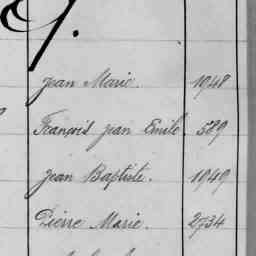 Jean Marie. 1948
François Jean Emile. 589
Jean Baptiste. 1949
Pierre Marie. 2734